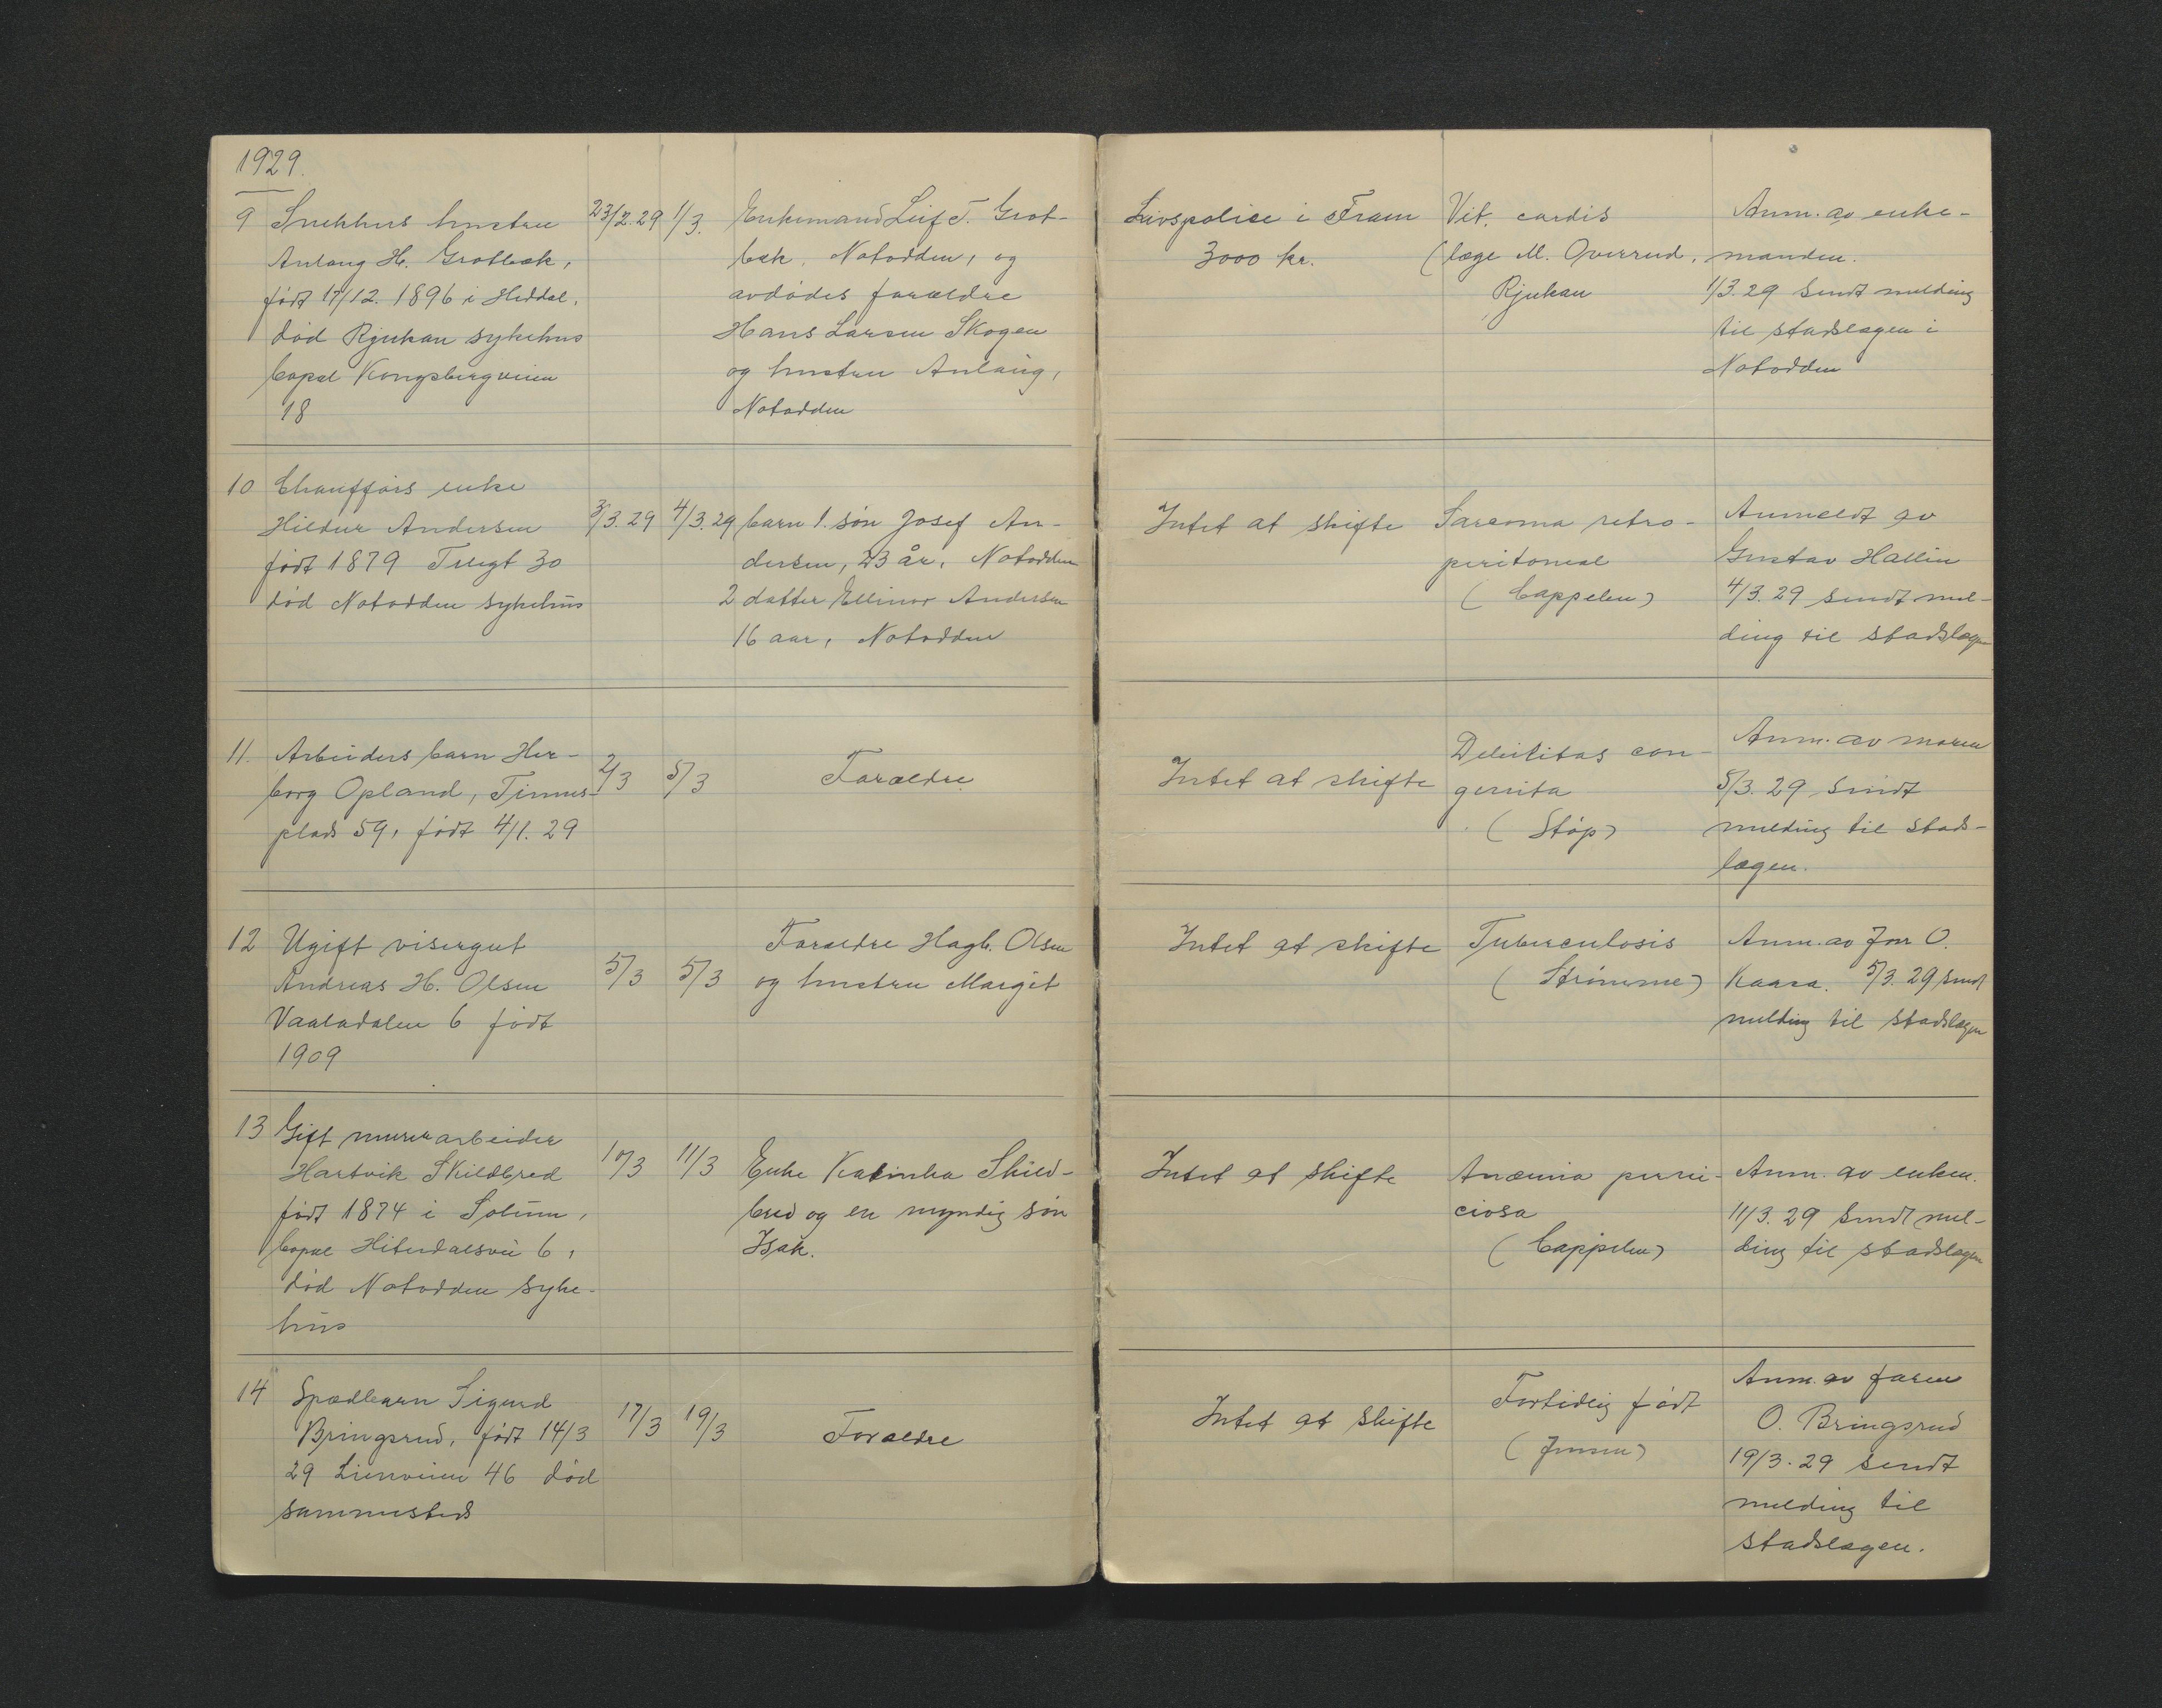 1929.
9 Snekkers hustru 23/2.29 1/3. Enkemand Leif T. Grot-
Anlaug H. Grotbæk, bæk, Notodden, og
født 17/12. 1896 i Heddal, avdødes forældre
død Rjukan sykehus Hans Larsen Skogen
bopæl Kongsbergveien og hustru Anlaug,
18 Notodden
Livspolice i Fram Vit. cordis Anm. av enke-
3000 kr. (læge M. Overrud, manden.
Rjukan 1/3.29 sendt melding
til stadslægen i
Notodden
10 Chaufførs enke
Hildur Andersen 3/3.29 4/3.29 barn 1. søn Josef An-
født 1879 Telegt 30 dersen, 23 år, Notodden
død Notodden sykehus 2 datter Ellinor Andersen
16 aar, Notodden
Intet at skifte Sarcoma retro- Anmeldt av
peritoneal Gustav Hallin
(Cappelen) 4/3.29 sendt mel-
ding til stadslægen
11. Arbeiders barn Her- 2/3 5/3 Forældre
borg Opland, Tinnes-
plads 59, født 4/1.29
Intet at skifte Debilitas con- Anm. av moren
genita 5/3.29 sendt
(Støp) melding til stads-
lægen.
12 Ugift visergut Forældre Hagb. Olsen
Andreas H. Olsen 5/3 5/3 og hustru Margit
Vaaladalen 6 født
1909
Intet at skifte Tuberculosis Anm. av Jon O.
(Strømme) Kaasa. 5/3.29 sendt
melding til stadslægen
13 Gift murerarbeider
Hartvik Skildbred 10/3 11/3 Enke Katinka Skild-
født 1874 i Solum, bred og en myndig søn
bopæl Hiterdalsvei 6, Isak.
død Notodden syke-
hus
Intet at skifte Anæmia perni- Anm. av enken.
ciosa 11/3.29 sendt mel-
(Cappelen) ding til stadslægen
14 Spædbarn Sigurd 17/3 19/3 Forældre
Bringsrud, født 14/3
29 Lienveien 46 død
sammesteds
Intet at skifte Fortidlig født Anm. av faren
(Jensen) O. Bringsrud
19/3.29 sendt
melding til
stadslægen.